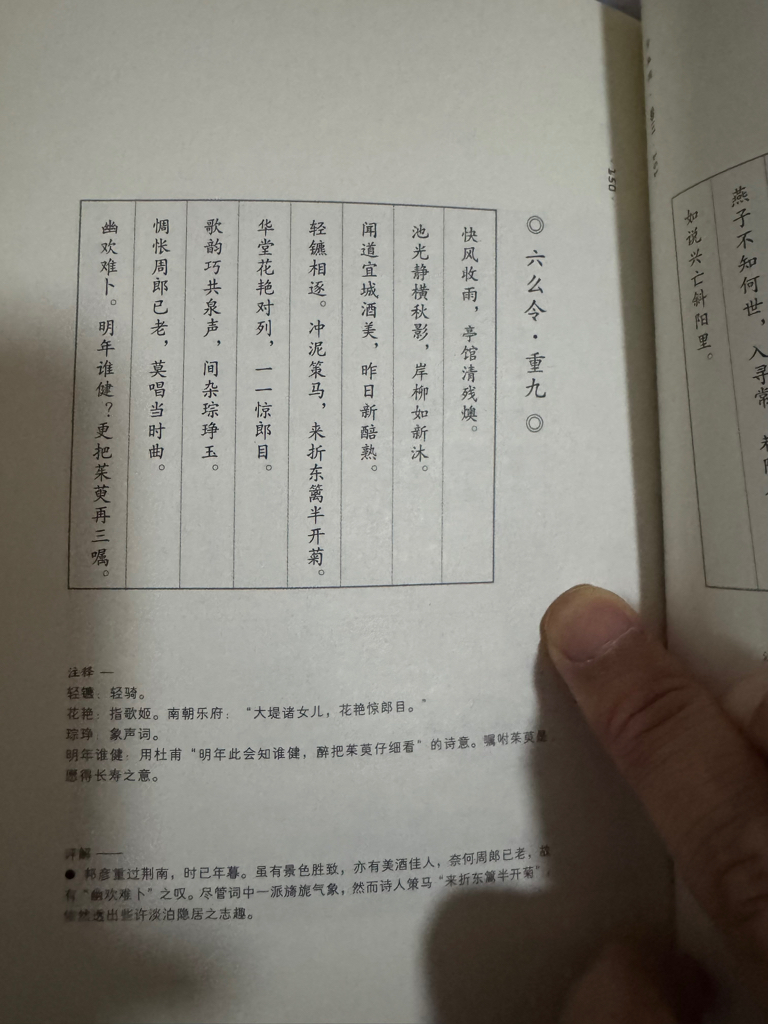 ◎ 六么令·重九 ◎
快风收雨，亭馆清残燠。
池光静横秋影，岸柳如新沐。
闻道宜城酒美，昨日新醅熟。
轻镳相逐。冲泥策马，来折东篱半开菊。
华堂花艳对列，一一惊郎目。
歌韵巧共泉声，间杂琮琤玉。
惆怅周郎已老，莫唱当时曲。
幽欢难卜。明年谁健？更把茱萸再三嘱。
注释 —
轻镳：轻骑。
花艳：指歌姬。南朝乐府：“大堤诸女儿，花艳惊郎目。”
琮琤：象声词。
明年谁健：用杜甫“明年此会知谁健，醉把茱萸仔细看”的诗意。嘱咐茱萸是
愿得长寿之意。
评解 ——
● 邦彦重过荆南，时已年暮。虽有景色胜致，亦有美酒佳人，奈何周郎已老，故
有“幽欢难卜”之叹。尽管词中一派旖旎气象，然而诗人策马“来折东篱半开菊”，
依然透出些许淡泊隐居之志趣。
150
燕子不知何世，入寻常
如说兴亡斜阳里。